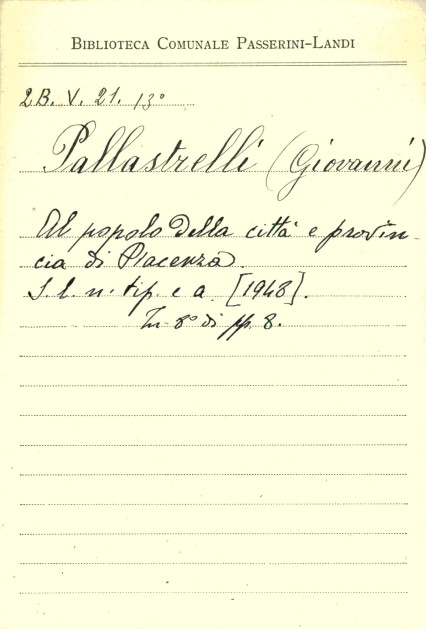 BIBLIOTECA COMUNALE PASSERINI-LANDI
2B. V. 21. 13°
Pallastrelli (Giovanni)
Al popolo della città e provin-
cia di Piacenza.
S. l. n. tip. e a. [1948].
In 8° di pp. 8.